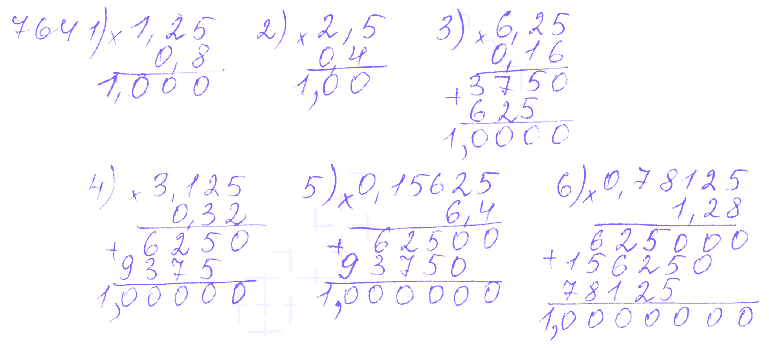 764 1) × 1,25 2) × 2,5 3) × 6,25
0,8 0,4 0,16
1,000 1,00 + 3750
625
1,0000
4) × 3,125 5) × 0,15625 6) × 0,78125
0,32 6,4 1,28
+ 6250 + 62500 625000
9375 93750 + 156250
1,00000 1,000000 78125
1,0000000